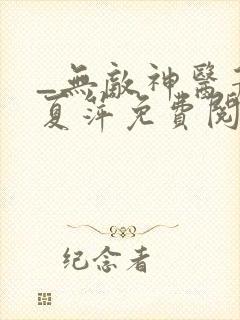 _無敵神醫
夏萍免費閱
纪念者